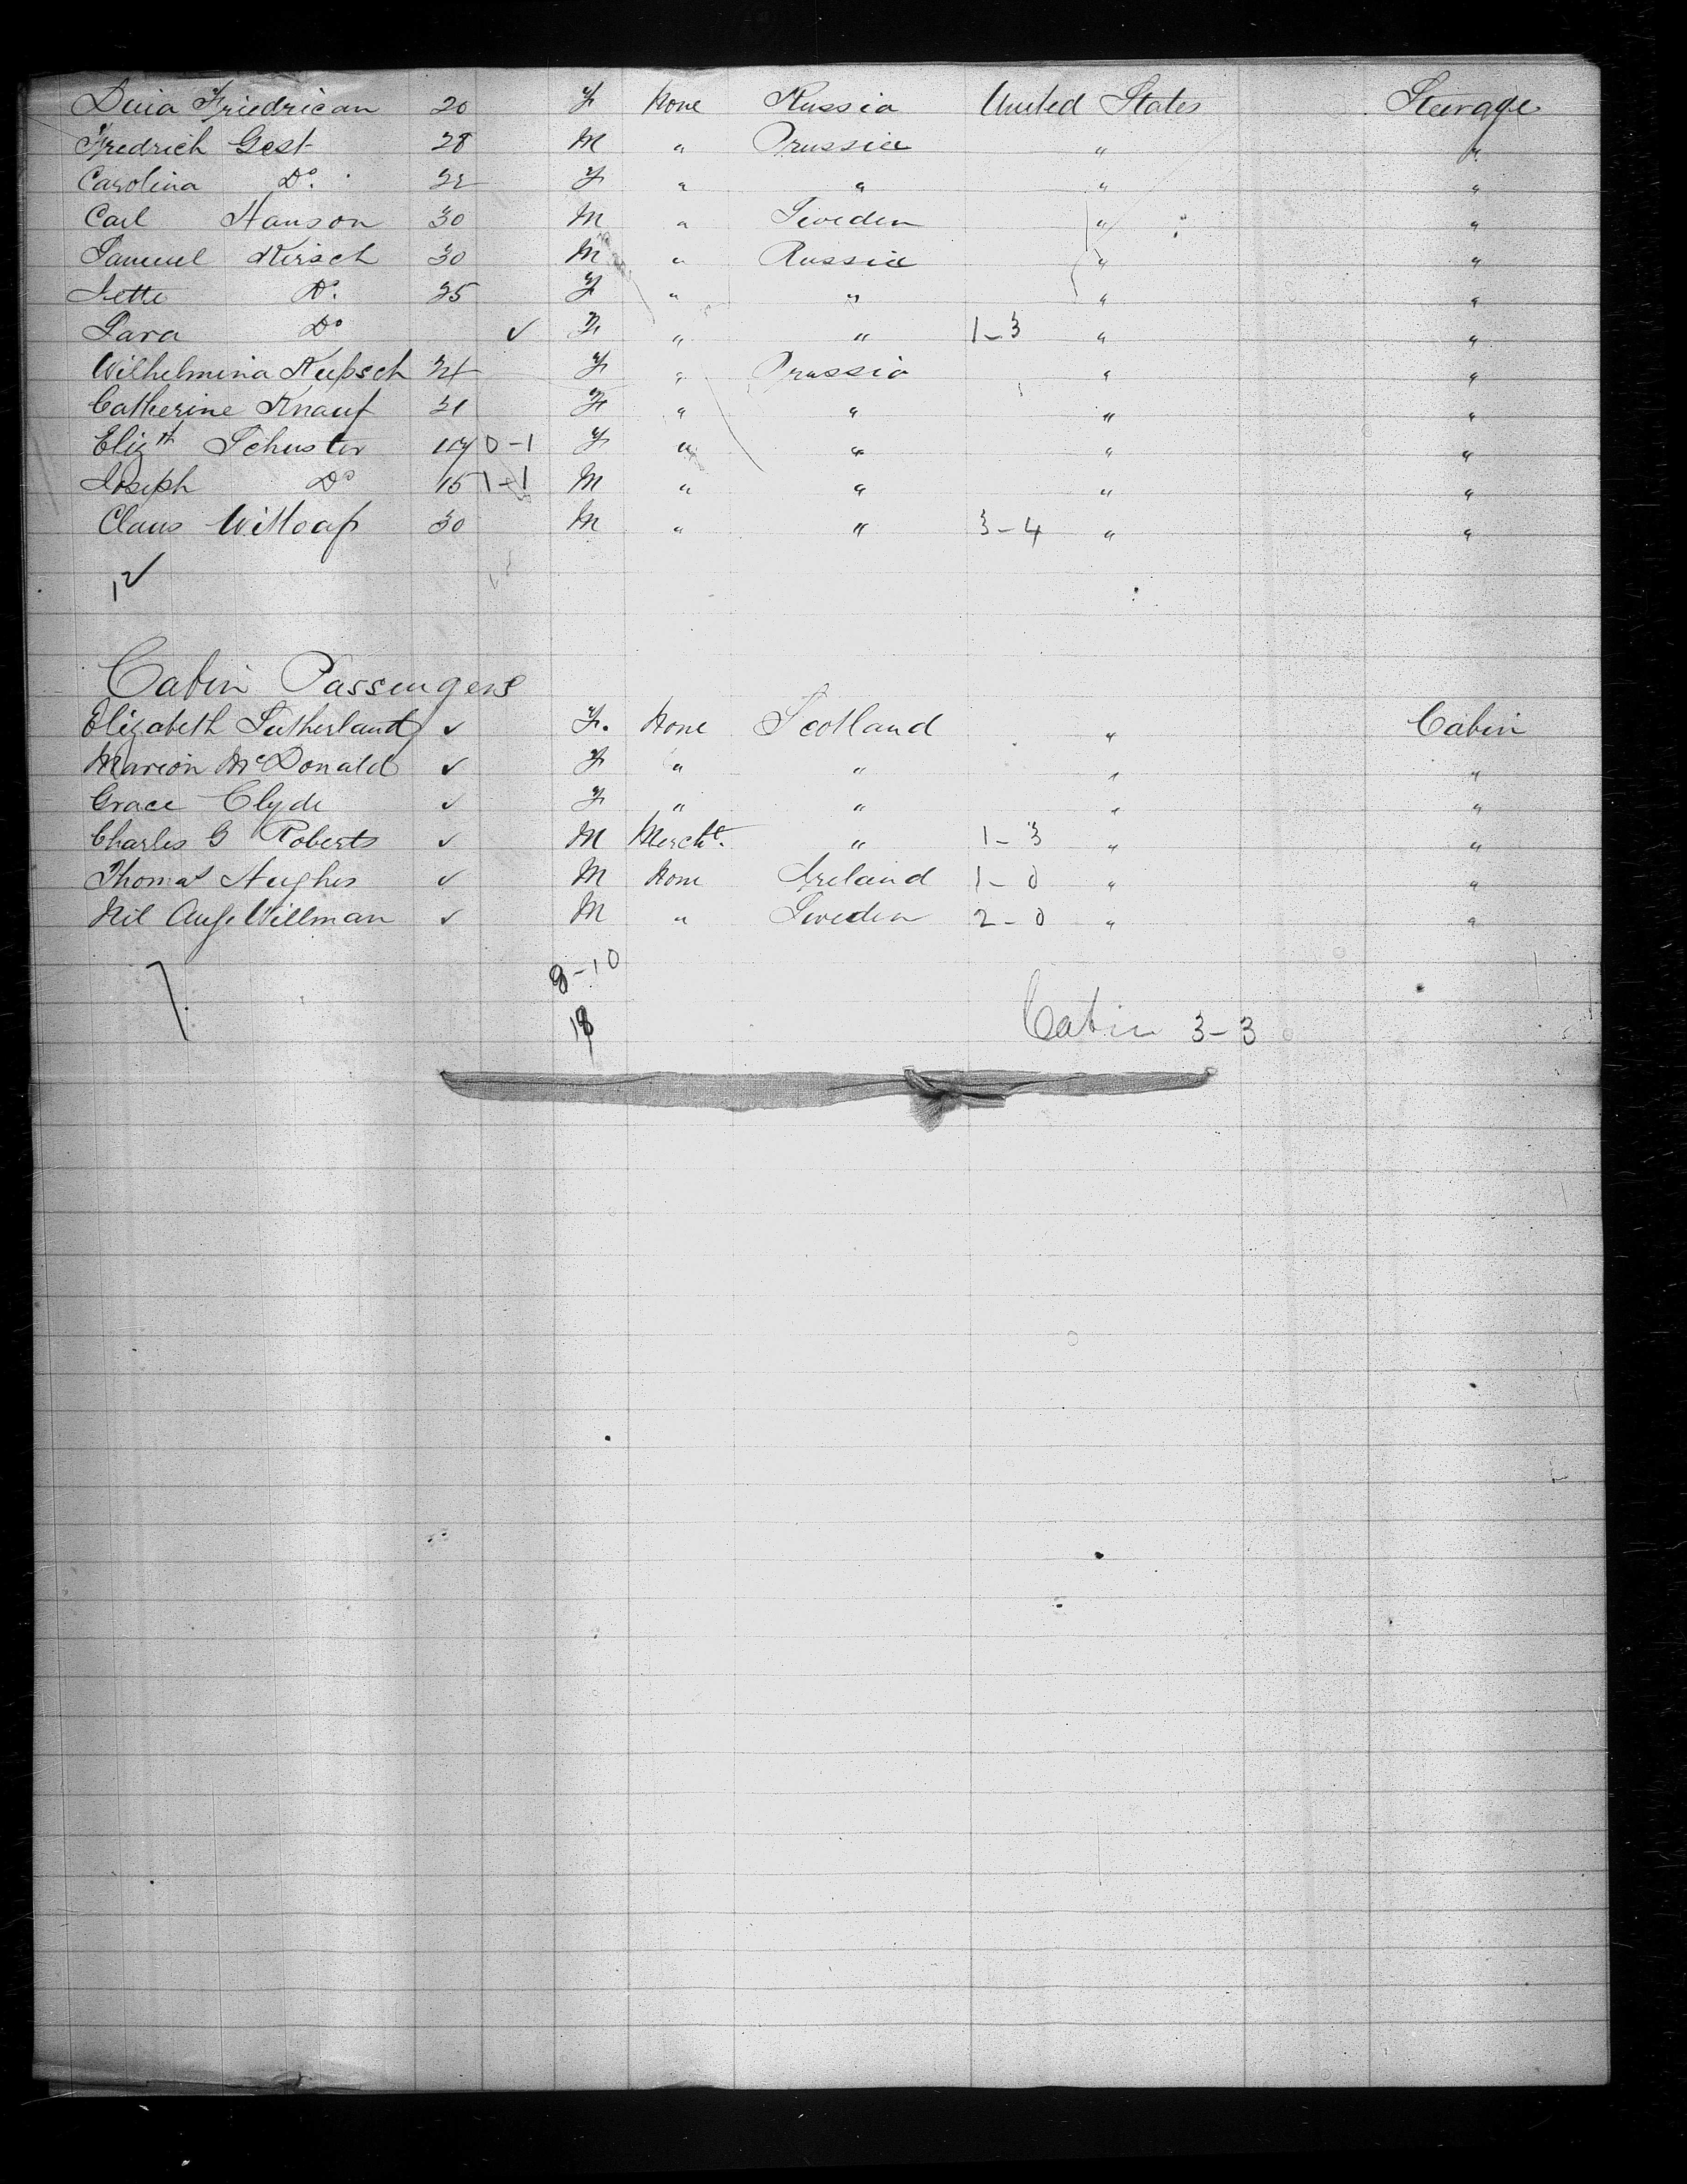 Friedrican 20 F None Russia United States Steerage
Fredrich Gest 28 M " Prussia " "
Carolina Do. 22 F " " " "
Carl Hanson 30 M " Sweden " "
Samuel Hirsch 30 M " Russia " "
Jette Do. 25 F " " " "
Sara Do ✓ F " " 1-3 " "
Wilhelmina 24 F " Prussia " "
Catherine Knauf 21 F " " " "
Elizth Schuster 0-1 F " " " "
Joseph Do 15 1-1 M " " " "
Claus 30 M " " 3-4 " "
12
Cabin Passengers
Elizabeth Sutherland ✓ F. None Scotland " Cabin
Marion McDonald ✓ F " " " "
Grace Clyde ✓ F " " " "
Charles G Roberts ✓ M Mercht. " 1-3 " "
Thomas Hughes ✓ M None Ireland 1-0 " "
Nil Aug. Willman ✓ M " Sweden 2-0 " "
8-10
18 Cabin 3-3